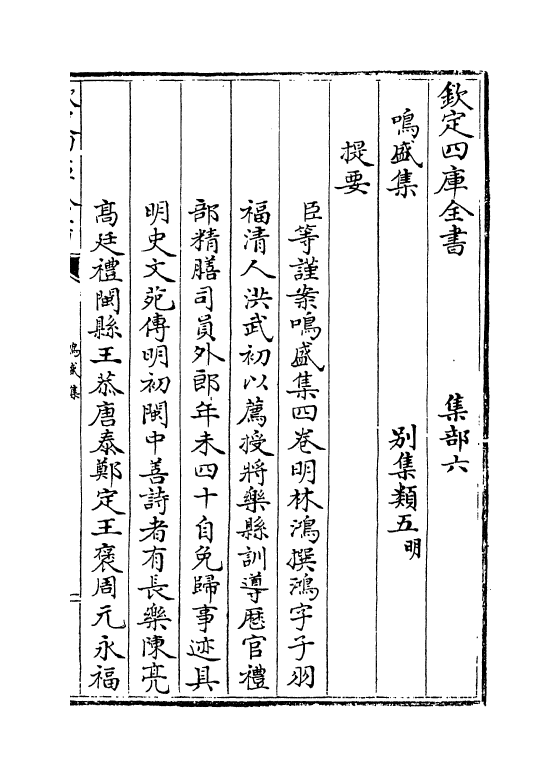 欽定四庫全書　　　集部六
鳴盛集　　　別集類五明
提要
臣等謹案鳴盛集四卷明林鴻撰鴻字子羽
福清人洪武初以薦授將樂縣訓導歷官禮
部精膳司員外郎年未四十自免歸事迹具
明史文苑傳明初閩中善詩者有長樂陳亮
高廷禮閩縣王恭唐泰鄭定王褒周元永福
鳴盛集